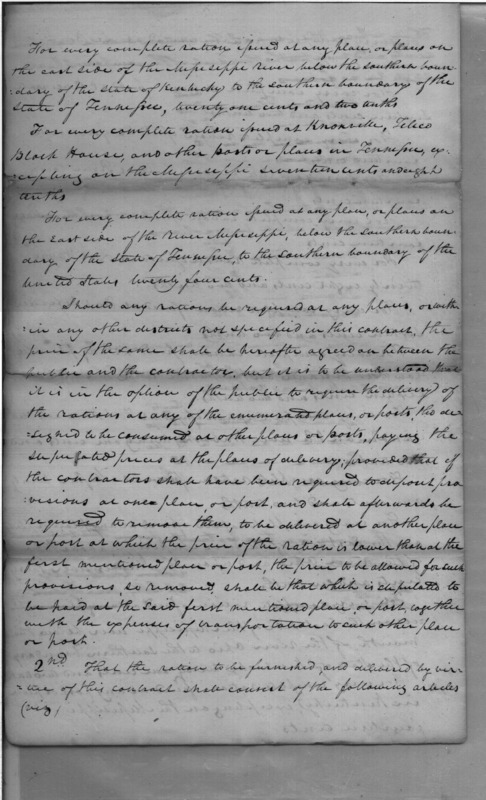 For every complete ration issued at any place, or places on
the east side of the Missisippi river below the southern boun-
:dary of the state of Kentucky to the southern boundary of the
State of Tennessee, twenty one cents and two tenths
For every complete ration issued at Knoxville, Telico
Block House, and other posts or places in Tennessee, ex-
:cepting on the Missisippi seventeen cents and eight
tenths
For every complete ration issued at any place, or places on
the East side of the River Missisippi, below the southern boun-
dary of the state of Tennessee, to the southern boundary of the
United States twenty four cents.
Should any rations be required at any places, or with-
:in any other districts not specified in this contract, the
price of the same shall be hereafter agreed on between the
public and the contractor, but it is to be understood that
it is in the option of the public to require the delivery of
the rations at any of the enumerated places, or posts, tho de-
:signed to be consumed at other places or posts, paying the
stipulated prices at the places of delivery; provided that if
the contractors shall have been required to deposit pro
visions at one place, or post, and shall afterwards be
required to remove them, to be delivered at another place
or post at which the price of the ration is lower than at the
first mentioned place or post, the price to be allowed for such
provisions, so removed, shall be that which is stipulated to
be paid at the said first mentioned place or post, together
with the expenses of transportation to such other place
or post.
2nd That the ration to be furnished, and delivered by vir-
:tue of this contract shall consist of the following articles
(viz)